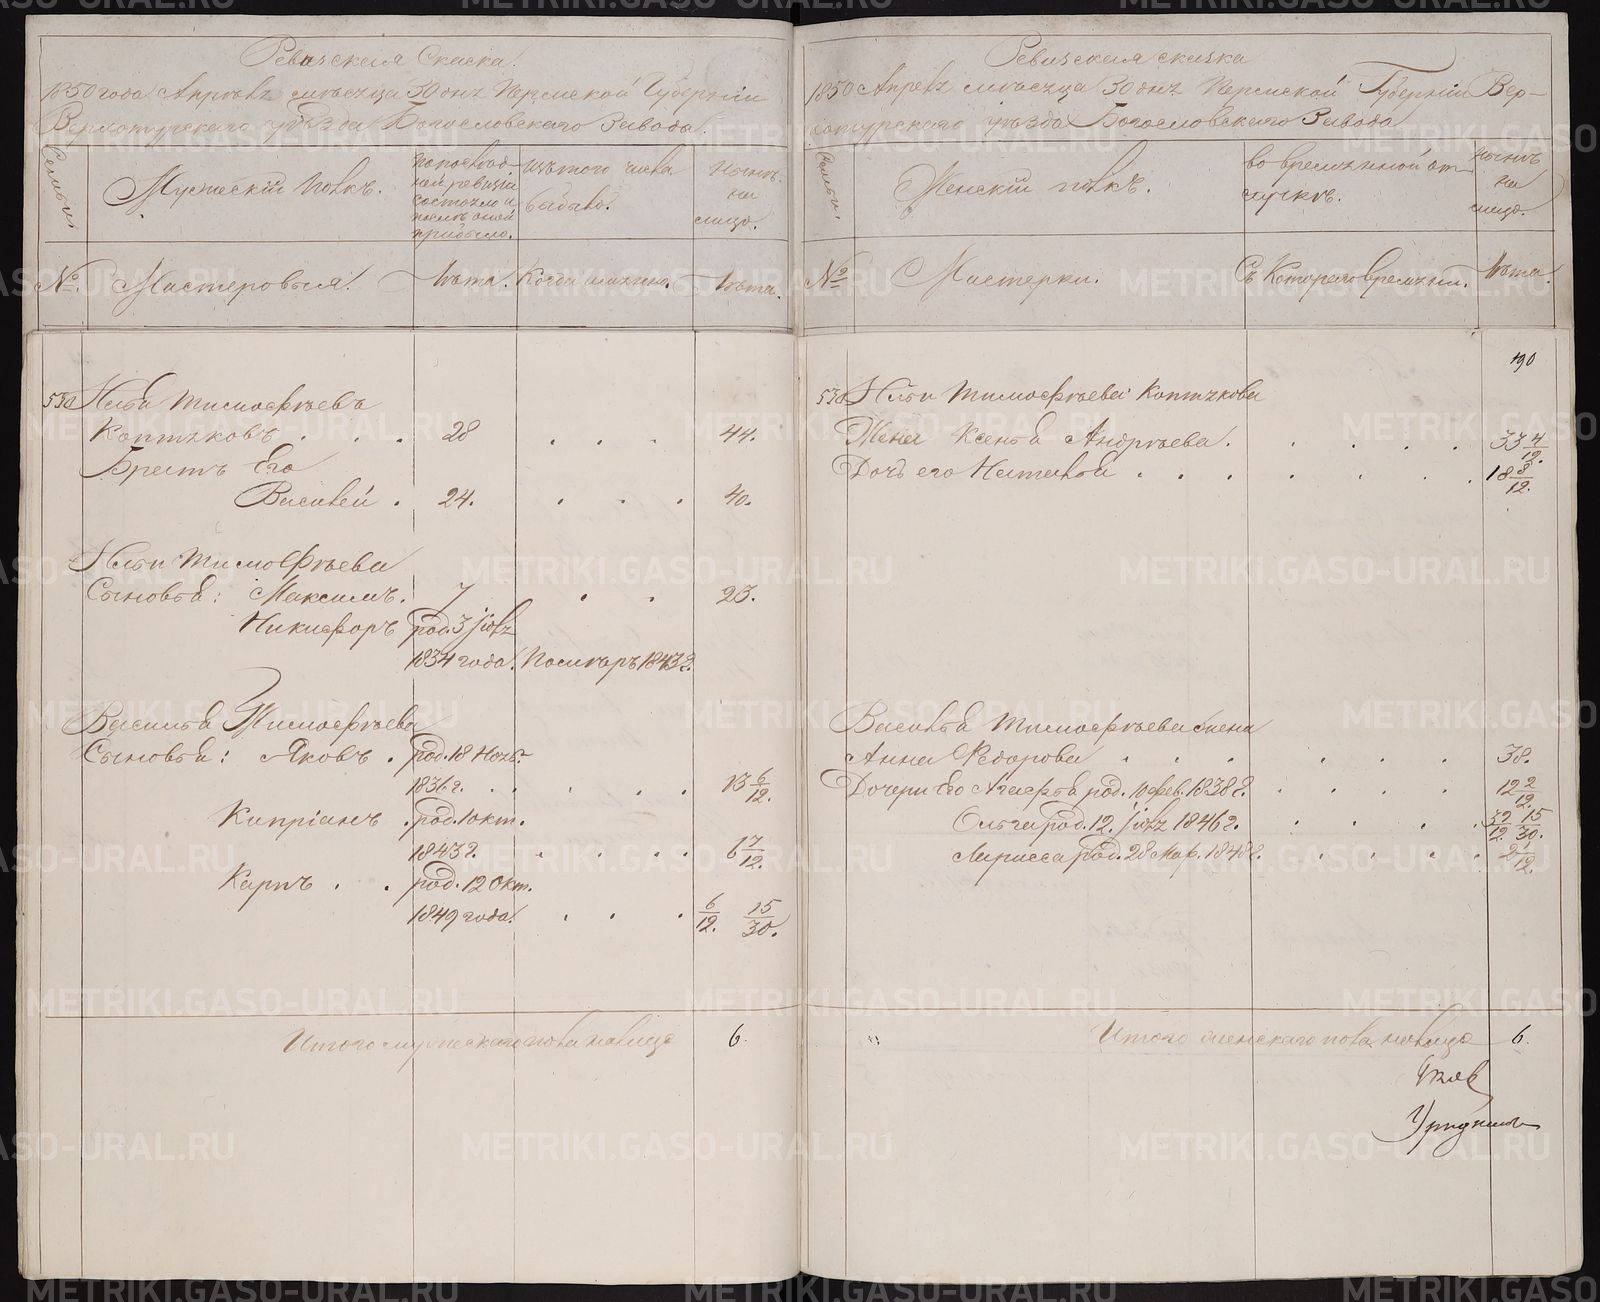 Ревизская Сказка.
1850 года Апреля месяца 30 дня Пермской Губернии
Верхотурского уѣзда Богословского Завода.
Семьи
Мужеский полъ.
по послѣд-
ней ревизіи
состояло и
послѣ оной
прибыло.
Изъ того числа
выбыло.
Нынѣ
на
лицо.
№.
Мастеровыя.
Лѣта.
Когда именно.
Лѣта.
Илья Тимофѣевъ
Коптяковъ . . . 28 . . . 44.
Братъ Его
Василей . 24. . . . 40.
Ильи Тимофѣева
Сыновья: Максимъ. 7 . . 23.
Никифоръ род. 3 іюля
1834 года. Помѣръ 1843 г.
Василья Тимофѣева
Сыновья: Яковъ . род. 18 Нояб.
1836 г. . . . . . 13 6/12.
Кипріанъ . род. 1 окт.
1843 г. . . . . 6 7/12.
Карпъ . . род. 12 Окт.
1849 года. . . . 6/12. 15/30.
Итого мужеского пола на лицо 6.
Ревизская сказка
1850 Апреля месяца 30 дня Пермской Губерніи Вер-
хотурского уѣзда Богословского Завода
Семьи
Женскій полъ.
во временной от-
лучкѣ.
Нынѣ
на
лицо.
№
Мастерки.
Съ Которого времяни.
Лѣта.
190
Ильи Тимофѣева Коптякова
Жена Ксенья Андрѣева . . . . . 33 4/12.
Дочь его Наталья . . . . . . . 18 3/12.
Василья Тимофѣева жена
Анна Федорова . . . . . . 38.
Дочери Его Агафья род. 10 фев. 1838 г. . . . . 12 2/12.
Ольга род. 12. іюля 1846 г. . . . .
Лариса род. 28 Мар. 1848 г. . . . . 2 1/12.
Итого женскаго пола на лицо 6.